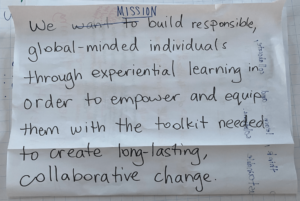 MISSION
We want to build responsible,
global-minded individuals
through experiential learning in
order to empower and equip
them with the toolkit needed
to create long-lasting,
collaborative change.